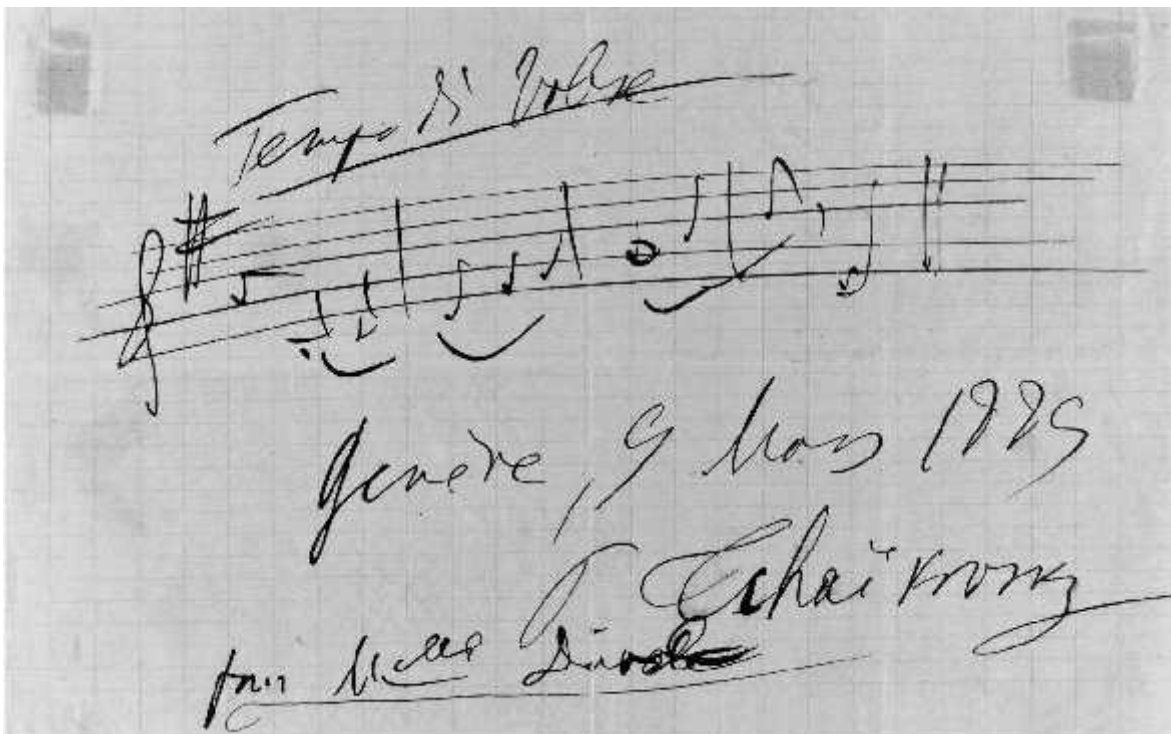 Tempo di Valse
Genève, 9 Mars 1889
P. Tschaïkovsky
pour Mlle